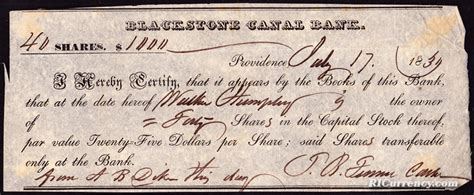 BLACKSTONE CANAL BANK.
40 SHARES. $ 1000
Providence July 17. 1834
I Hereby Certify, that it appears by the Books of this Bank,
that at the date hereof Walter Humphrey is the owner
of = Forty Shares in the Capital Stock thereof,
par value Twenty-Five Dollars per Share; said Shares transferable
only at the Bank.
from A B this day
RICurrency.com